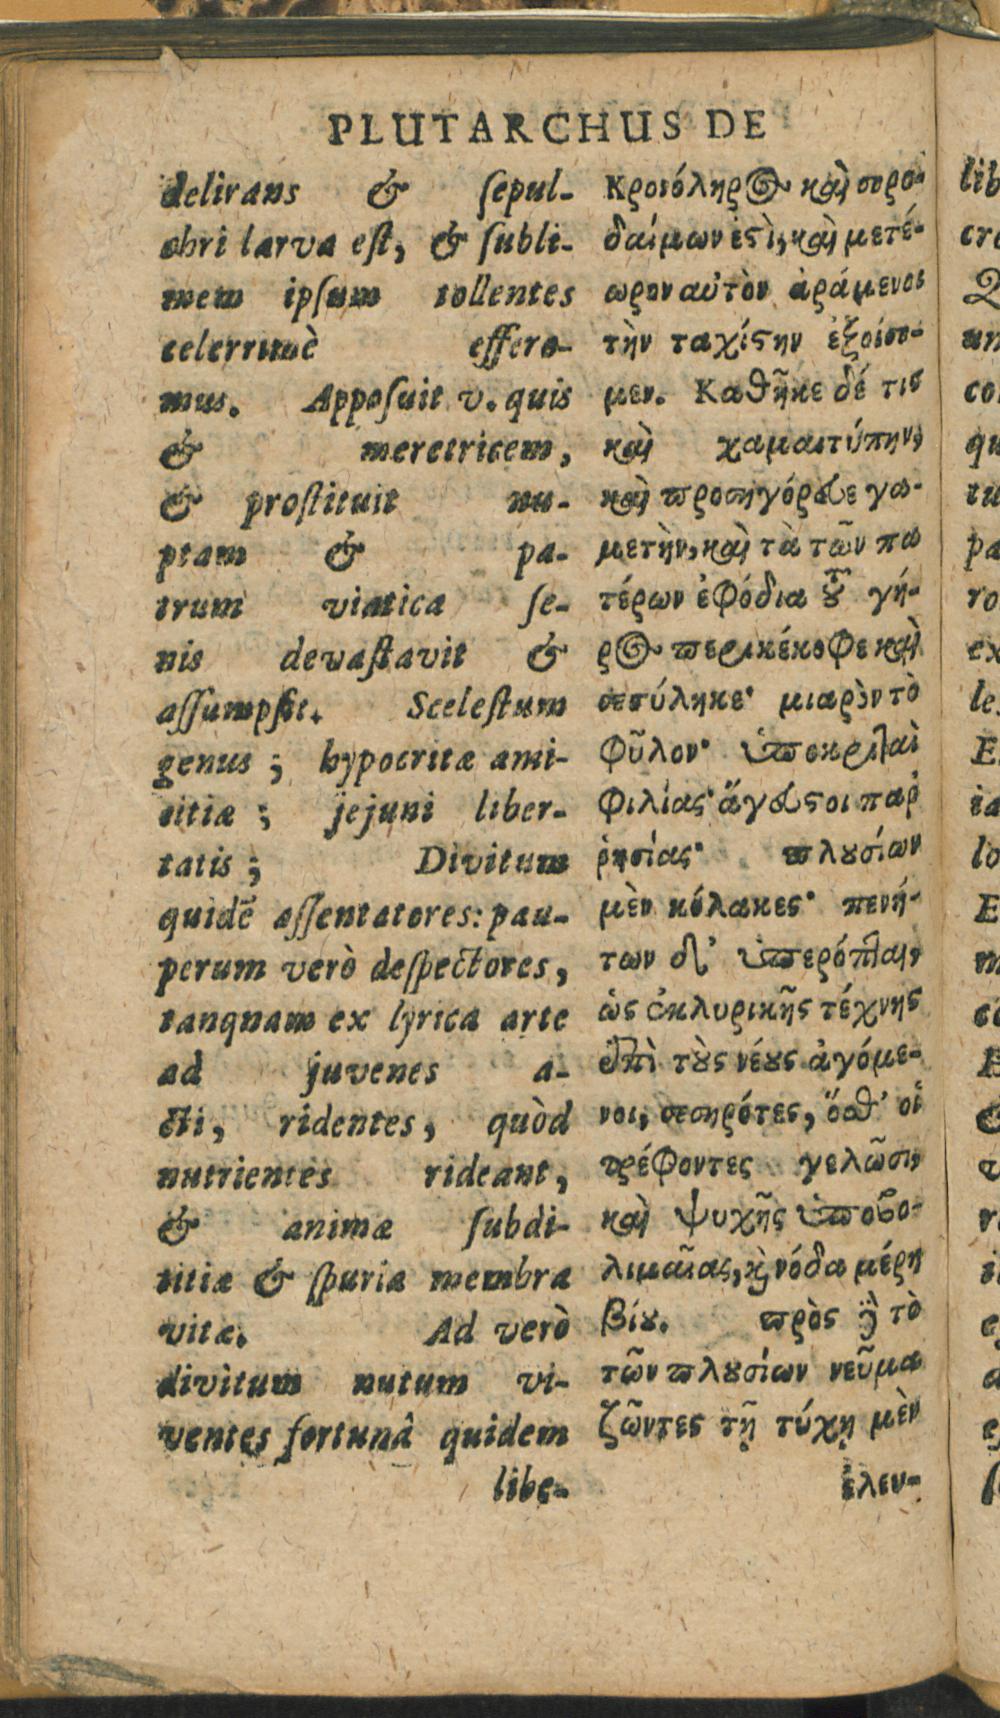 PLUTARCHUS DE
delirans & ſepul-
chri larva eſt, & ſubli-
mem ipſum tollentes
celerrimè effero-
mus. Appoſuit v. quis
& meretricem,
& proſtituit nu-
ptam & pa-
trum viatica ſe-
nis devaſtavit &
aſſumpſit. Sceleſtum
genus; hypocritæ ami-
citiæ; jejuni liber-
tatis; Divitum
quidē aſſentatores: pau-
perum verò deſpectores,
tanquam ex lyrica arte
ad juvenes a-
cti, ridentes, quòd
nutrientes rideant,
& animæ ſubdi-
titiæ & ſpuria membra
vitæ. Ad verò
divitum nutum vi-
ventes fortunâ quidem
libe-
Κρονόληρος καὶ σορο-
δαίμων ἐστὶ, καὶ μετέ-
ωρον αὐτὸν ἀράμενοι
τὴν ταχίστην ἐξοίσο-
μεν. Καθῆκε δέ τις
καὶ χαμαιτύπην,
καὶ προσηγόρευσε γα-
μετὴν, καὶ τὰ τῶν πα
τέρων ἐφόδια τοῦ γή-
ρως περικέκοφε καὶ
σεσύληκε· μιαρὸν τὸ
φῦλον· ὑποκριταὶ
φιλίας· ἄγευστοι παρ
ῥησίας· πλουσίων
μὲν κόλακες· πενή-
των δ' ὑπερόπται·
ὡς ἐκ λυρικῆς τέχνης
ἐπὶ τοὺς νέους ἀγόμε-
νοι, σεσηρότες, ὅσθ' οἱ
τρέφοντες γελῶσι,
καὶ ψυχῆς ὑποβο-
λιμαίας, καὶ νόθα μέρη
βίου. πρὸς δὲ τὸ
τῶν πλουσίων νεῦμα
ζῶντες τῇ τύχῃ μὲν
ἐλευ-